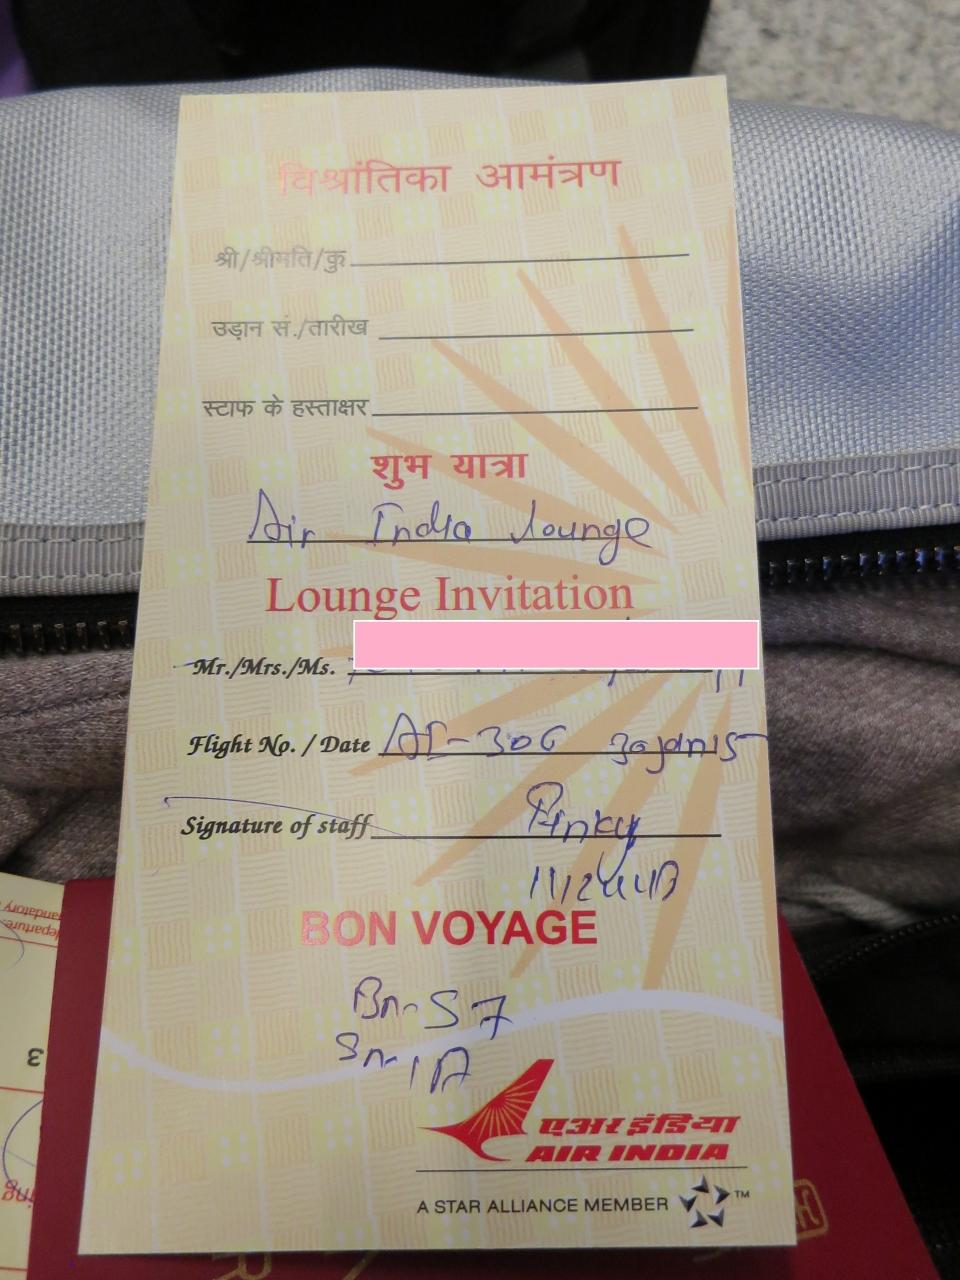 विश्रांतिका आमंत्रण
श्री/श्रीमति/कु
उड़ान सं./तारीख
स्टाफ के हस्ताक्षर
शुभ यात्रा
Air India Lounge
Lounge Invitation
Mr./Mrs./Ms.
Flight No. / Date AI-306 30Jan15
Signature of staff Pinky
BON VOYAGE
Bn-S7
Sn-1A
एअर इंडिया
AIR INDIA
A STAR ALLIANCE MEMBER ™